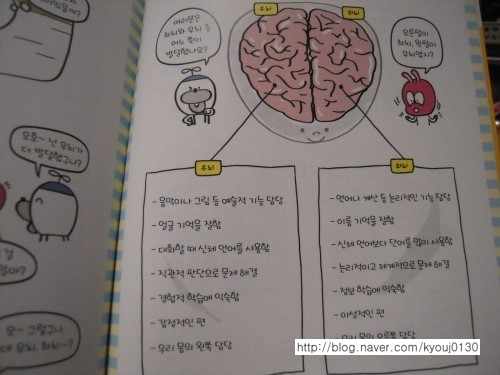 여러분은
좌뇌와 우뇌 중
어느 쪽이
발달했나요?
우뇌
좌뇌
오른팔이
좌뇌, 왼팔이
우뇌였지?
오호~ 넌 우뇌가
더 발달했구나?
오~ 그렇구나.
우뇌
- 음악이나 그림 등 예술적 기능 담당
- 얼굴 기억을 잘함
- 대화할 때 신체 언어를 사용함
- 직관적 판단으로 문제 해결
- 경험적 학습에 익숙함
- 감정적인 편
- 우리 몸의 왼쪽 담당
좌뇌
- 언어나 계산 등 논리적인 기능 담당
- 이름 기억을 잘함
- 신체 언어보다 단어를 많이 사용함
- 논리적이고 체계적으로 문제 해결
- 정보 학습에 익숙함
- 이성적인 편
- 우리 몸의 오른쪽 담당
http://blog.naver.com/kyouj0130